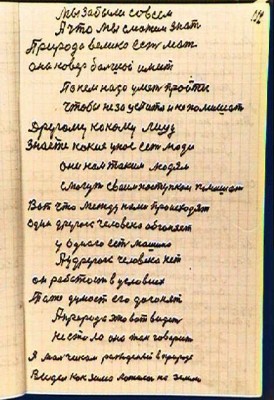 114
Мы забыли совсем
А что мы сможим знат
Природа велико ест мат
она ковер балшой имит
По нем надо умет пройти
чтобы не запустит и не помишат
Другому какому лицу
Знаете какие у нас ест люди
Они нам таким людям
смогут сваим поступком помишат
Вот что между нами происходят
один другова человека обгоняет
у одного ест машино
А у другова человека нет
он работает в условиях
Тоже думает его догонят
А природа это вот видит
она так говорит
Я мальчиком рожденый в природе
Видел как зимо ложилас на землю